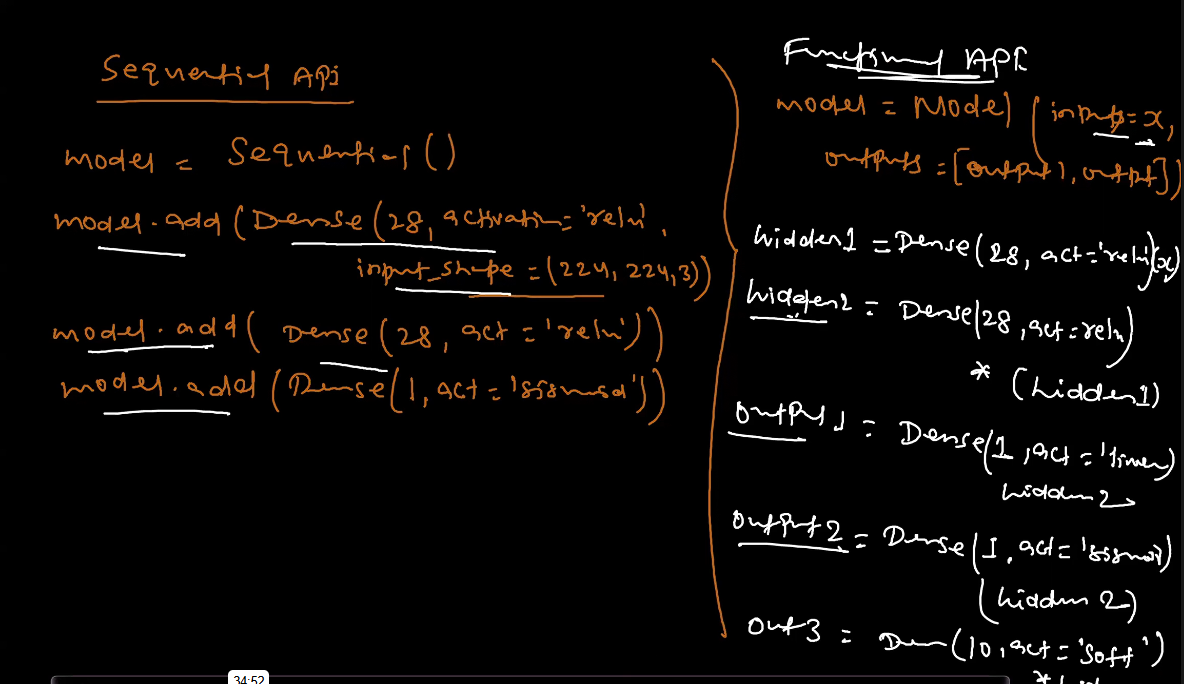 Sequential API
model = Sequential()
model.add(Dense(28, activation='relu',
input_shape=(224, 224, 3))
model.add(Dense(28, act='relu'))
model.add(Dense(1, act='sigmoid'))
Functional API
model = Model(inputs=x,
outputs=[output1, output])
hidden1 = Dense(28, act='relu')(x)
hidden2 = Dense(28, act=relu)
* (hidden1)
output1 = Dense(1, act='linear)
hidden2
output2 = Dense(1, act='sigmoid)
(hidden2)
out3 = Den(10, act='soft')
34:52